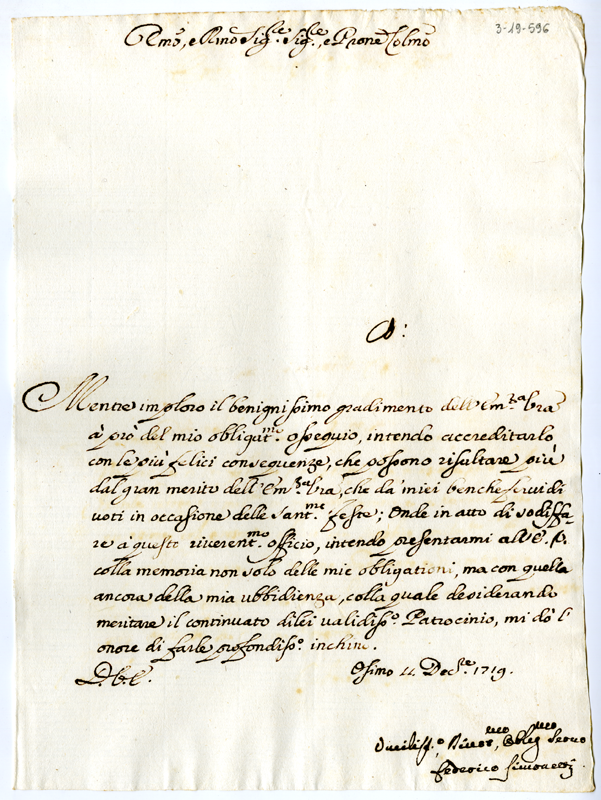 3-19-596
Emo, e Rmo Sig.re Sig.re, e Prone Colmo
A:
Mentre imploro il benignissimo gradimento dell'Em.za Vra
à prò del mio obligat.mo ossequio, intendo accreditarlo
con le più felici conseguenze, che possono risultare più
dal gran merito dell'Em.za Vra, che da' miei benche fervidi
voti in occasione delle Sant.me feste; Onde in atto di sodisfa-
re à questo riverent.mo officio, intendo presentarmi all'E. V.
colla memoria non solo delle mie obligationi, ma con quella
ancora della mia ubbidienza, colla quale desiderando
meritare il continuato di lei validiss.o Patrocinio, mi dò l'
onore di farle profondiss.o inchino.
D. V. E.
Osimo 11. Dec.re 1719.
Umiliss.o Servo
Federico Simonetti